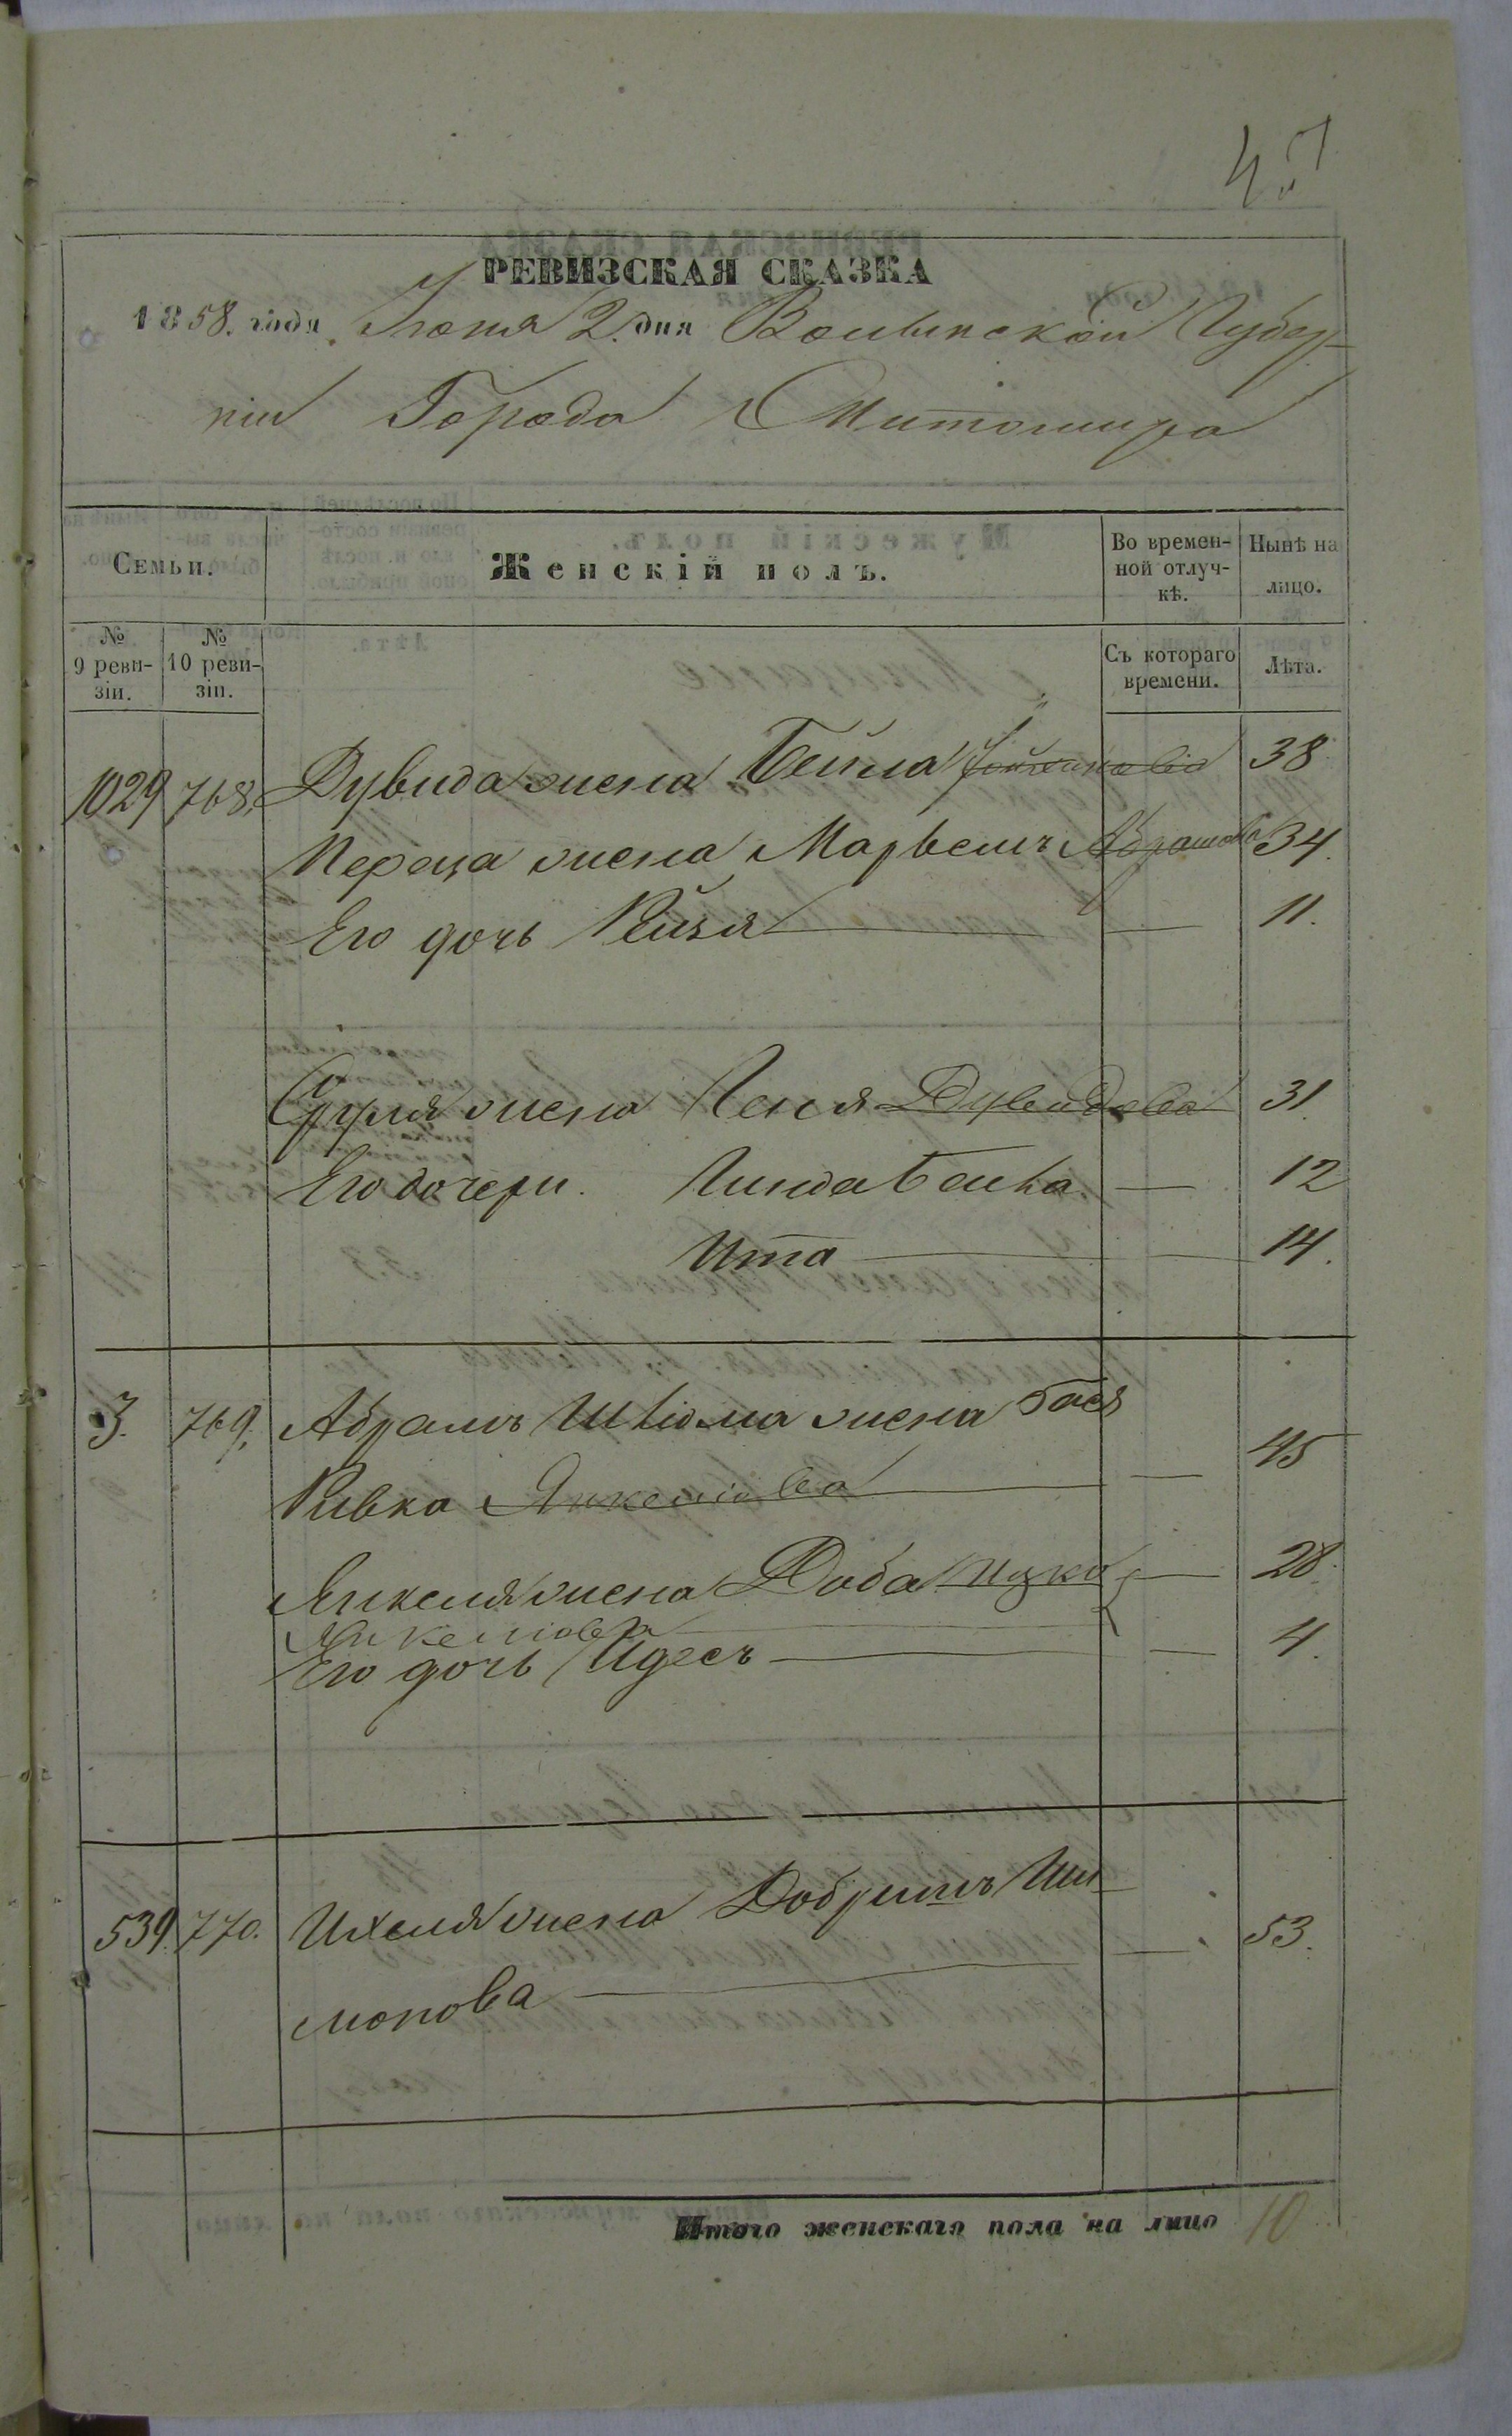 45
РЕВИЗСКАЯ СКАЗКА
1858. года Июня 2. дня Волынской Губер-
ніи Города Житомира
Семьи.
Женскій полъ.
Во времен-
ной отлуч-
кѣ.
Нынѣ на
лицо.
№
9 реви-
зіи.
№
10 реви-
зіи.
Съ котораго
времени.
Лѣта.
1029 768. Дувида жена Бейла 38
Переца жена Марьемъ Абрамова 34.
Его дочь Рейзя — 11.
Сруля жена Песя Дувидова 31.
Его дочери. Гинда Бейла — 12
Ита — 14.
3. 769. Абрамъ Шлiома жена Бася
Ривка Янкелiова — 45
Янкеля жена Доба Ицко — 28.
Янкелiова
Его дочь Идесъ — 4.
539. 770. Ихеля жена Добришъ Ши-
монова — 53.
Итого женскаго пола на лицо 10